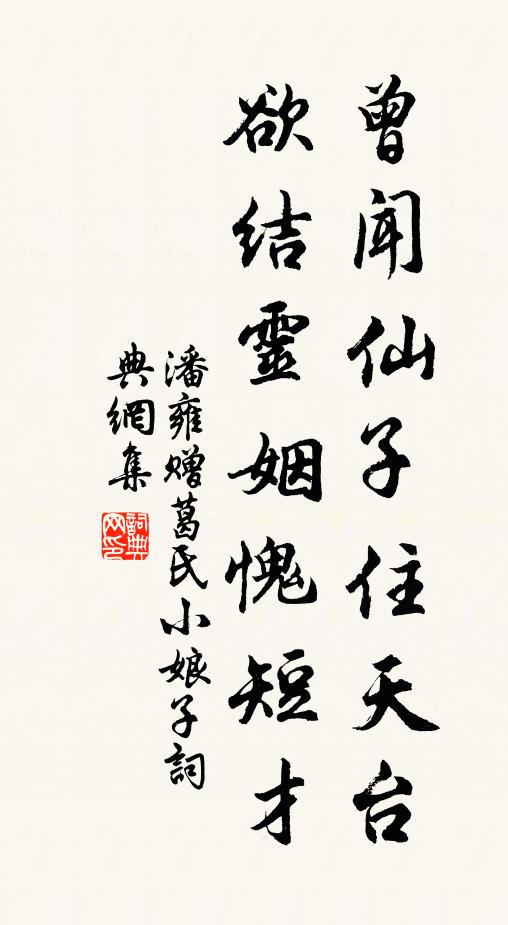 曾聞仙子住天台
欲结靈姻愧短才
潘雍赠葛氏小娘子詞
典網集
詞典
网印